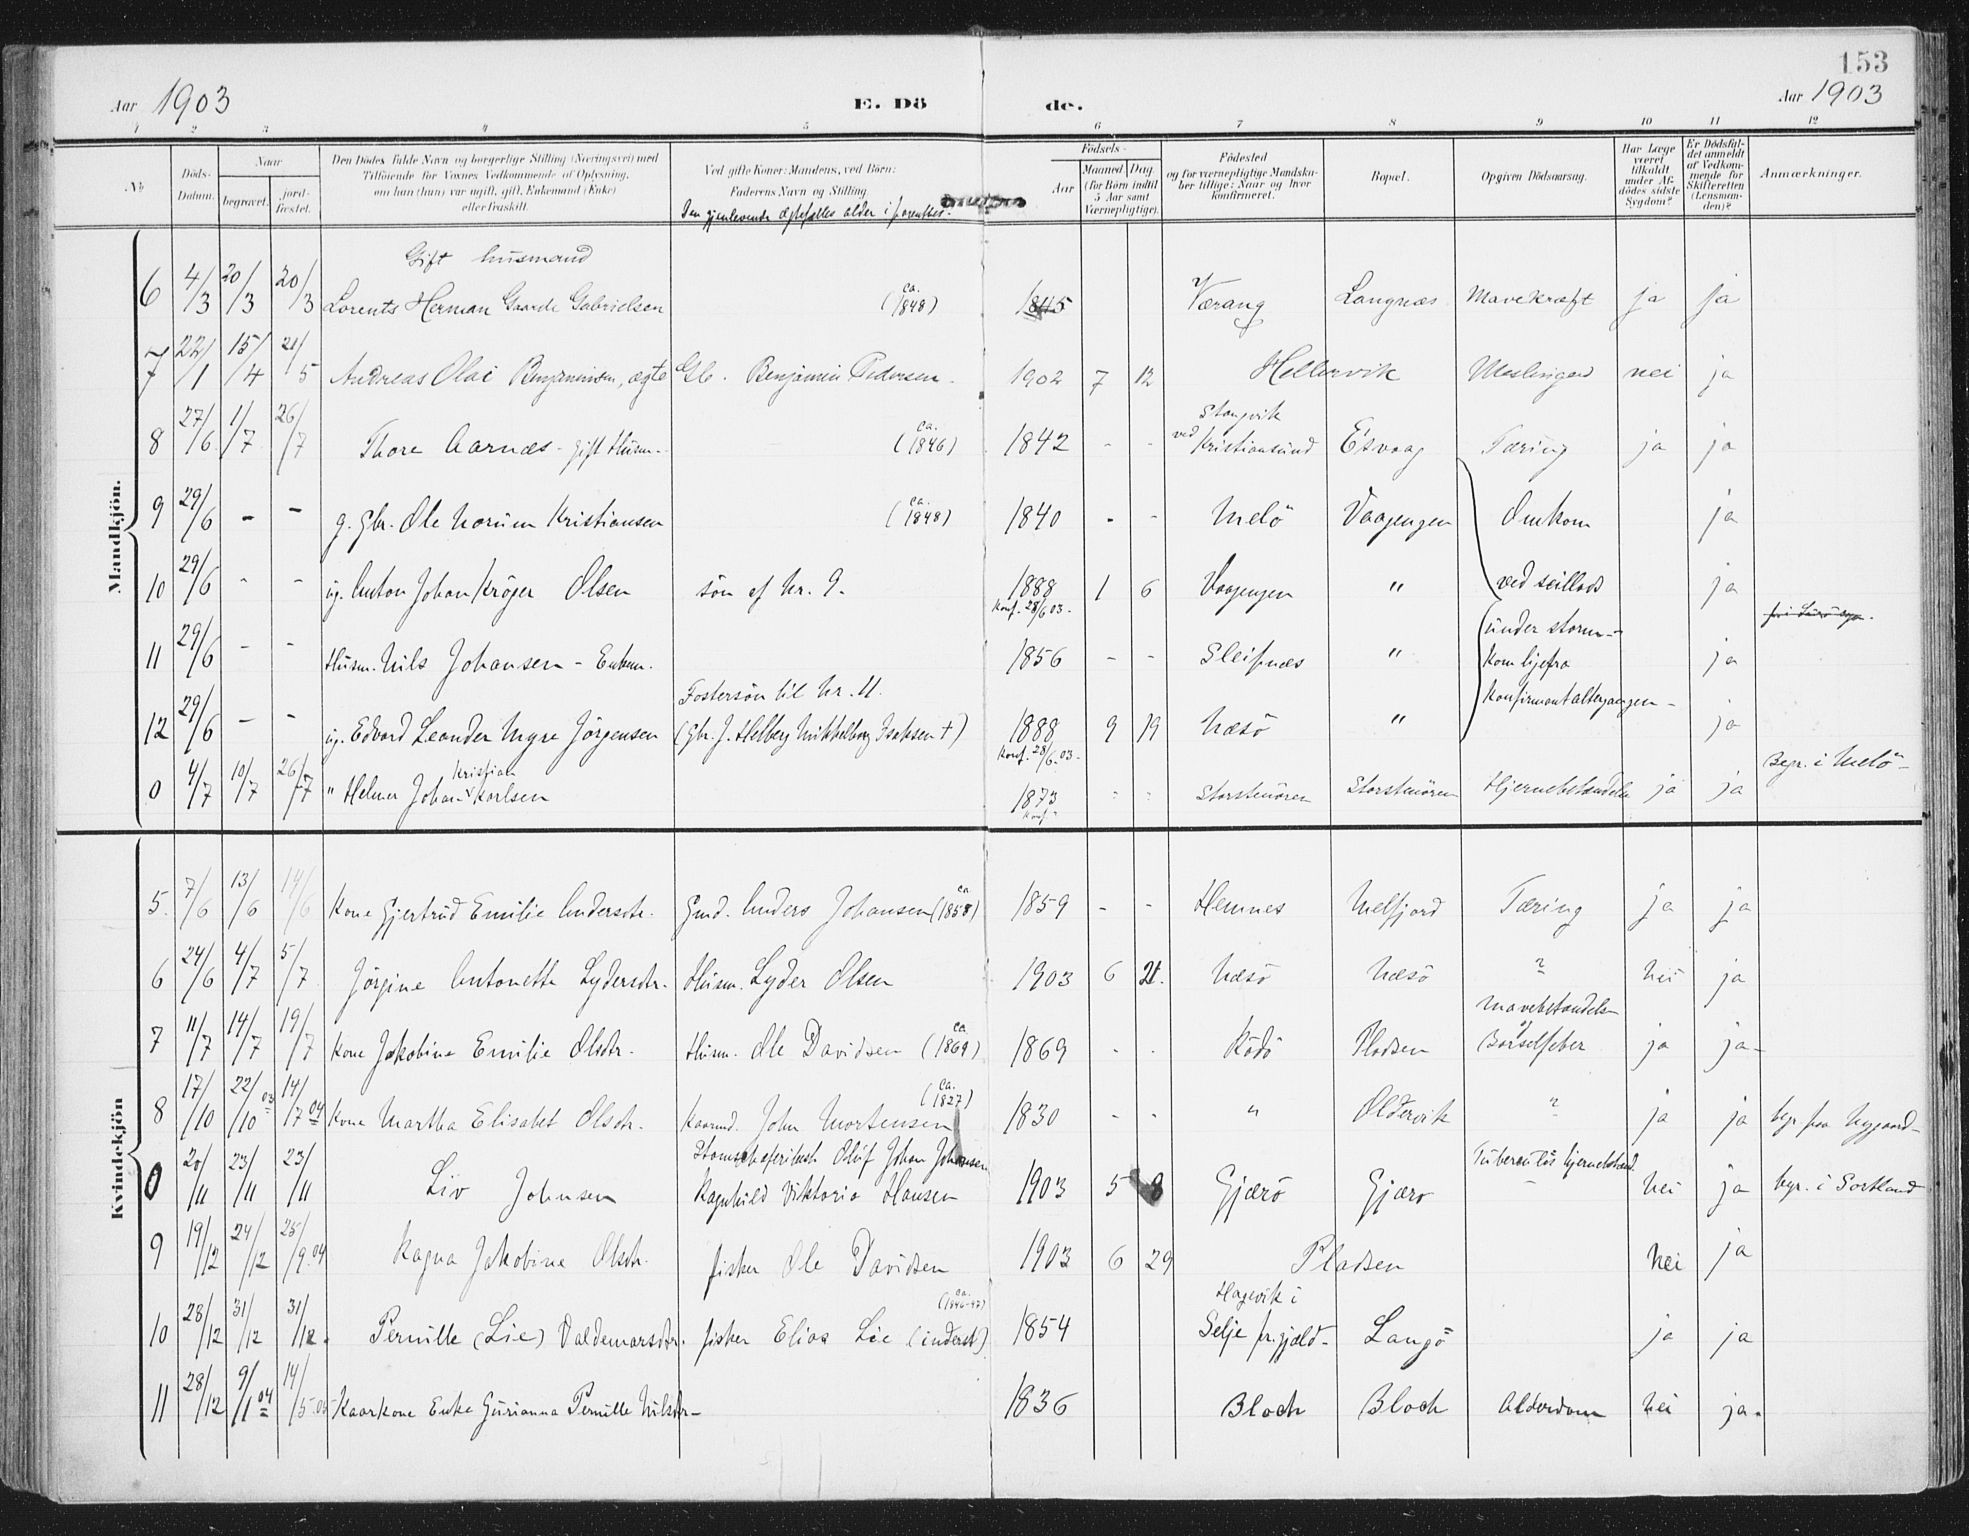 153
Aar 1903 E. Dö de. Aar 1903
1 2 3 4 5 6 7 8 9 10 11 12
No Döds-Datum. Naar begravet. jord-fæstet. Den Dödes fulde Navn og borgerlige Stilling (Næringsvei) med Tilföiende for Voxnes Vedkommende af Oplysning, om han (hun) var ugift, gift, Enkemand (Enke) eller fraskilt. Ved gifte Koner: Mandens, ved Börn: Faderens Navn og Stilling. Födsels- Aar Maaned Dag (for Börn indtil 5 Aar samt Værnepligtige). Födested og for værnepligtige Mandskaber tillige: Naar og hvor konfirmeret. Bopæl. Opgiven Dödsaarsag. Har Læge været tilkaldt under Afdödes sidste Sygdom? Er Dödsfaldet anmeldt af Vedkommende for Skifteretten (Lensmanden)? Anmærkninger.
Den gjenlevende ægtefælles alder i parenthes.
Mandkjön.
Gift husmand
6 4/3 20/3 20/3 Lorents Herman Gaarde Gabrielsen (ca. 1848) 1845 Værang Langnæs Mavekræft ja ja
7 22/1 15/4 21/5 Andreas Olai Benjaminsen, ægte Gb. Benjamin Pedersen. 1902 7 12 Hellervik Meslinger nei ja
8 27/6 1/7 26/7 Thore Aarnæs - gift Husm. (ca. 1846) 1842 - - Stangvik ved Kristiansund Esvaag Tæring ja ja
9 29/6 - - g. Gbr. Ole Norum Kristiansen (ca. 1848) 1840 - - Melö Vaagengen Omkom ja
10 29/6 - - ug. Anton Johan Kröger Olsen sön af Nr. 9. 1888 1 6 Vaagengen " ved seillads ja
Konf. 28/6 03.
11 29/6 - - Husm. Nils Johansen - Enkem. 1856 - - Sleipnæs " under storm - ja
kom hjefra
12 29/6 - - ug. Edvard Leander Myre Jörgensen Fostersön til Nr. 11. (Gbr. J. Helberg Mikkelborg Isaksen +) 1888 9 19 Næsö " konfirmantaltergangen - ja
Konf. 28/6 03.
0 4/7 10/7 26/7 " Helmer Johan Kristian Karlsen 1873 " " Storstenören Storstenören Hjernebetændelse ja ja Begr. i Melö -
Konf.
Kvindekjön
5. 7/6 13/6 14/6 Kone Gjertrud Emilie Andersdtr. Gmd. Anders Johansen (ca. 1858) 1859 - - Hemnes Melfjord Tæring ja ja
6 24/6 4/7 5/7 Jörgine Antonette Lydersdtr. Husm. Lyder Olsen 1903 6 21. Næsö Næsö ? nei ja
7 11/7 14/7 19/7 Kone Jakobine Emilie Olsdtr. Husm. Ole Davidsen (ca. 1869) 1869 - - Rödö Pladsen Mavebetændelse Barselfeber ja ja -
8 17/10 22/10 03 14/7 04 Kone Martha Elisabet Olsdtr. Kaarmd. John Mortensen (ca. 1827) 1830 - - " Oldervik ? ja ja bgr. paa Nygaard -
0 20/11 23/11 23/11 Liv Johnsen Oluf Johan Johansen Ragnhild Viktoria Hansen 1903 5 8 Gjærö Gjærö nei ja bgr. i Sortland
9 19/12 24/12 25/9.04 Ragna Jakobine Olsdtr. fisker Ole Davidsen 1903 6 29 Pladsen nei ja
10 28/12 31/12 31/12. Pernille (Lie) Valdemarsdtr. fisker Elias Lie (inderst) (ca. 1846-47) 1854 Hagevik i Selje pr.gjæld - Langö ja ja
11 28/12 9/1 04 14/5.04 Kaarkone Enke Gurianna Pernille Nilsdtr - 1836 Bloch Bloch Alderdom nei ja.